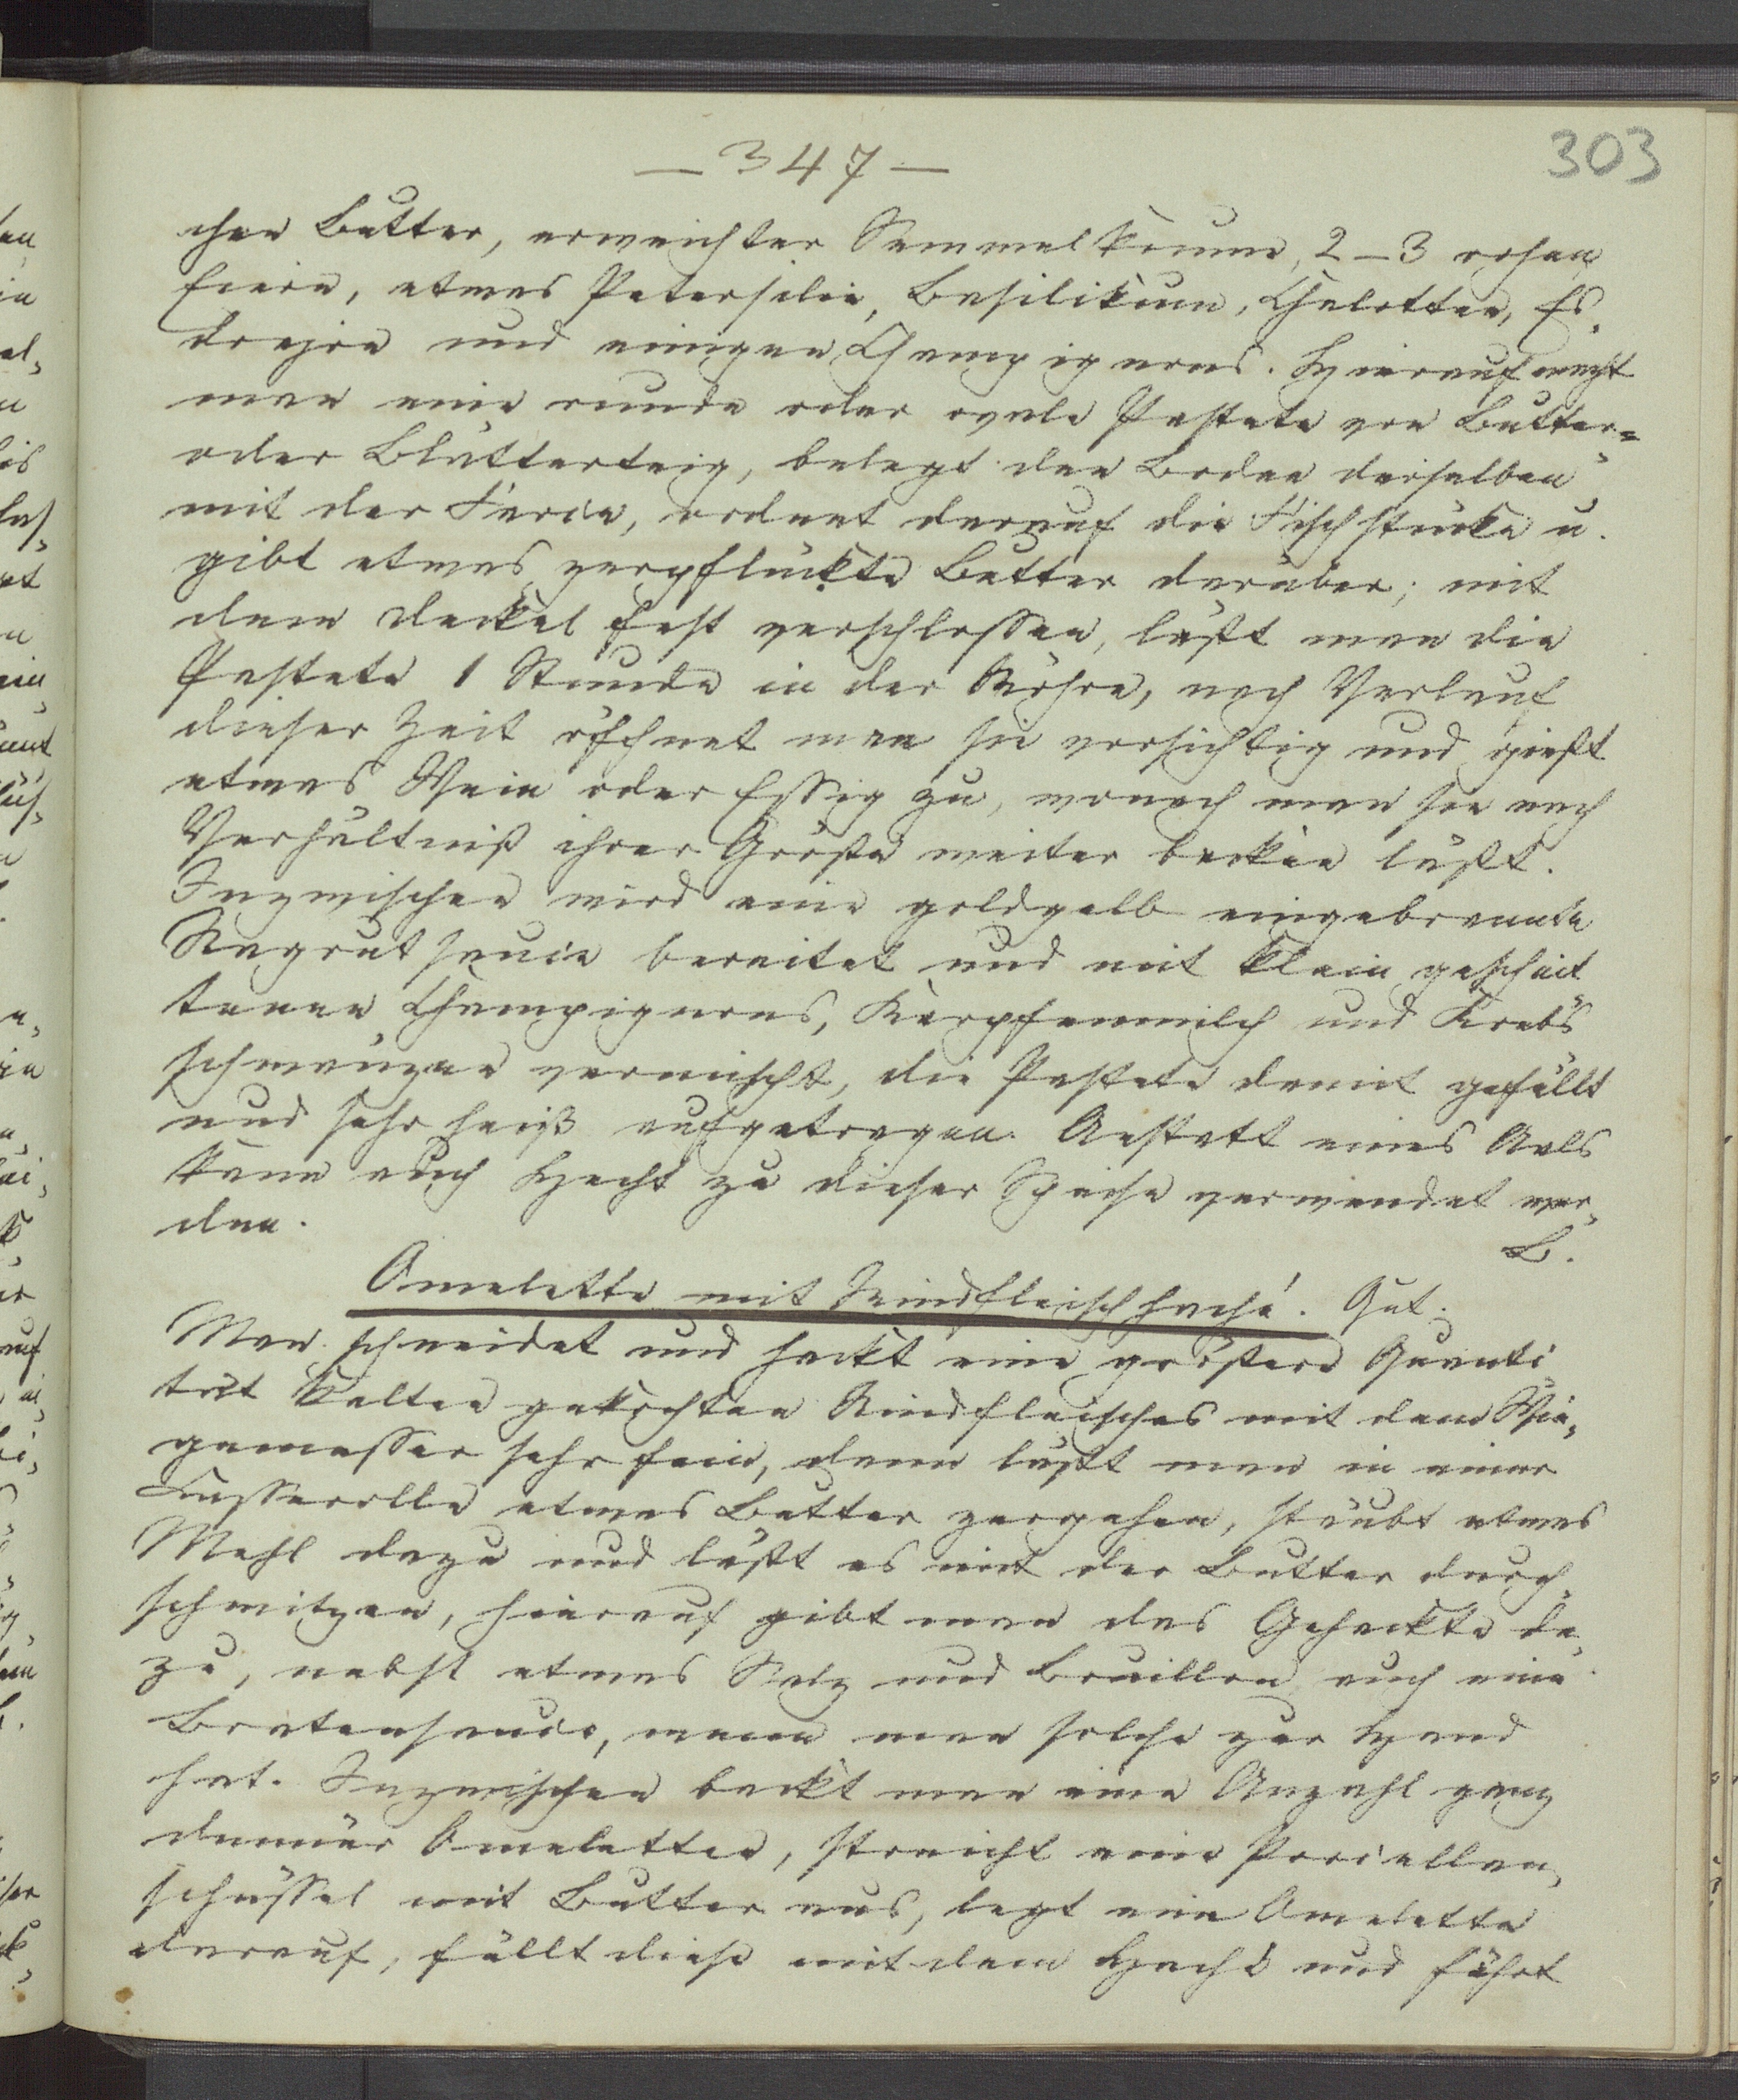 — 347 —
303
cher Butter, erweichter Semmelkrume, 2–3 rohen
Eiern, etwas Petersilie, Basilikum, Chalotten, Es-
dragon und einigen Champignons. Hierauf macht
man eine runde oder ovale Pastete von Butter=
oder Blätterteig, belegt den Boden derselben
mit der Farce, ordnet darauf die Fischstücke u.
gibt etwas zerpflückte Butter darüber; mit
dem Deckel fest verschlossen, läßt man die
Pastete 1 Stunde in der Röhre, nach Verlauf
dieser Zeit öffnet man sie vorsichtig und gießt
etwas Wein oder Essig zu, wonach man sie nach
Verhältniß ihrer Größe weiter backen läßt.
Inzwischen wird eine goldgelb eingebrannte
Ragoutsauce bereitet und mit klein geschnit-
tenen Champignons, Karpfenmilch und Krebs-
schwänzen vermischt, die Pastete damit gefüllt
und sehr heiß aufgetragen. Anstatt eines Aals
kann auch Hecht zu dieser Speise verwendet wer-
den.
B.
Omelette mit Rindfleischhaché. Gut.
Man schneidet und hackt eine größere Quanti-
tät kalten gekochten Rindfleisches mit dem Wie-
gemesser sehr fein, dann läßt man in einer
Kasserolle etwas Butter zergehen, stäubt etwas
Mehl dazu und läßt es mit der Butter durch-
schwitzen, hierauf gibt man das Gehackte da-
zu, nebst etwas Salz und Bouillon auch eine
Bratensauce, wenn man solche zur Hand
hat. Inzwischen backt man eine Anzahl ganz
dünner Omeletten, streicht eine Porcellan-
schüssel mit Butter aus, legt eine Omelette
darauf, füllt diese mit dem Haché und fährt